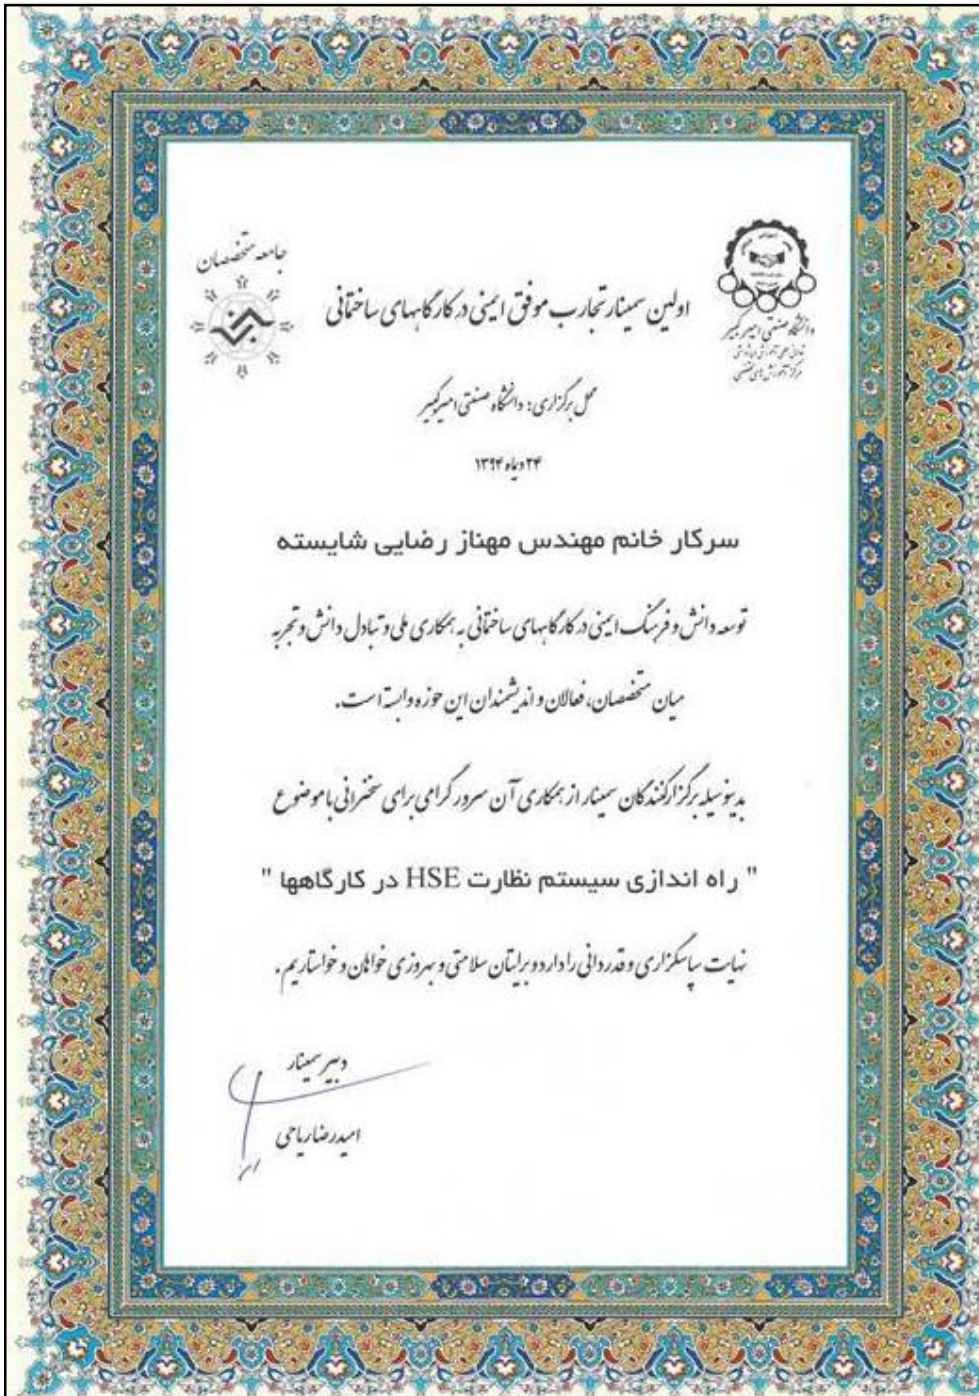 جامعه متخصصان
دانشگاه صنعتی امیرکبیر
مرکز آموزش‌های تخصصی
اولین سمینار تجارب موفق ایمنی در کارگاههای ساختمانی
محل برگزاری: دانشگاه صنعتی امیرکبیر
۲۴ دیماه ۱۳۹۴
سرکار خانم مهندس مهناز رضایی شایسته
توسعه دانش و فرهنگ ایمنی در کارگاههای ساختمانی به همکاری ملی و تبادل دانش و تجربه
میان متخصصان، فعالان و اندیشمندان این حوزه وابسته است.
بدینوسیله برگزارکنندگان سمینار از همکاری آن سرور گرامی برای سخنرانی با موضوع
" راه اندازی سیستم نظارت HSE در کارگاهها "
نهایت سپاسگزاری و قدردانی را دارد و برایتان سلامتی و بهروزی خواهان و خواستاریم.
دبیر سمینار
امیدرضا ریاحی